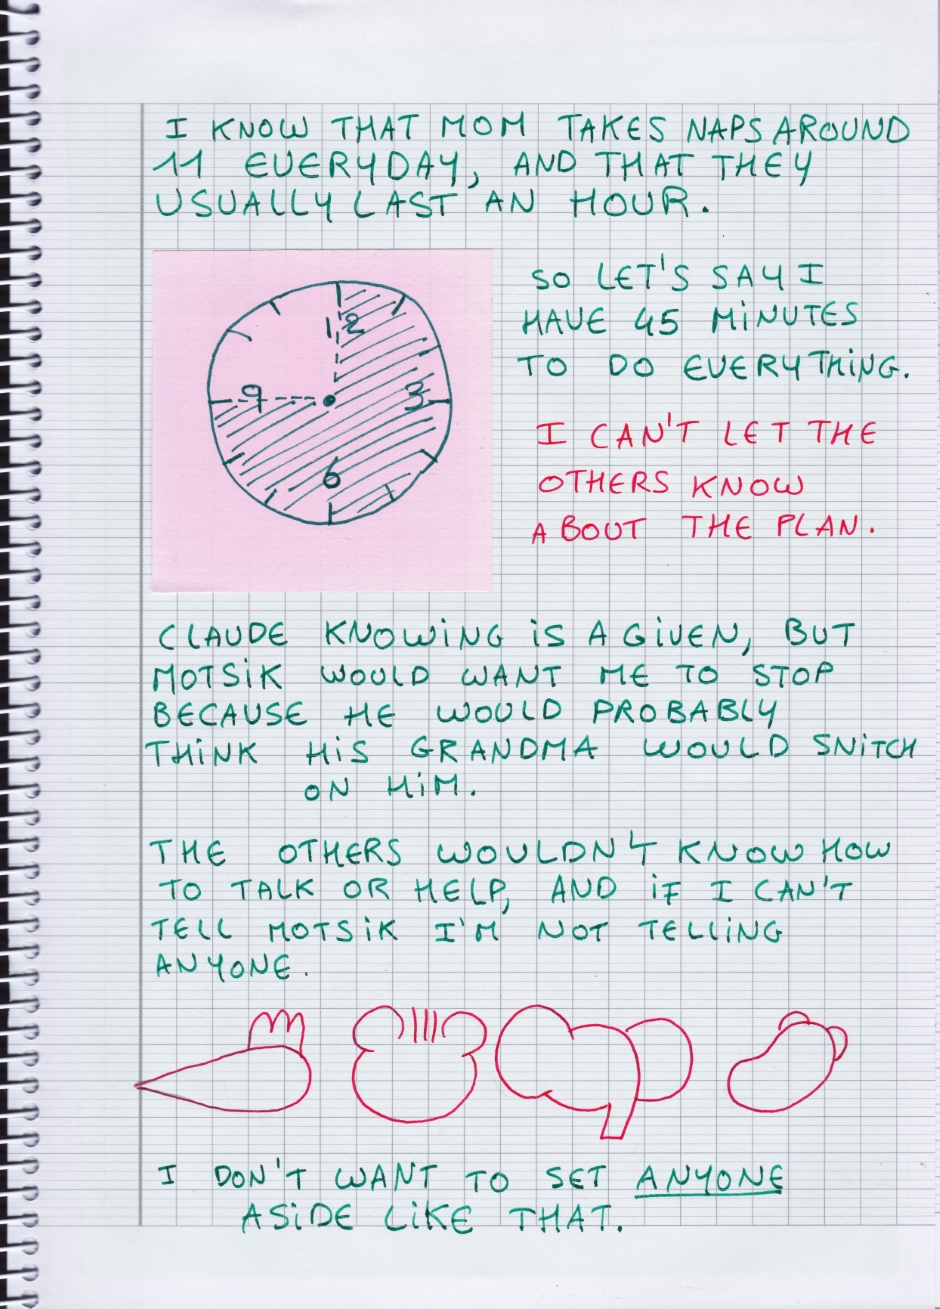 I KNOW THAT MOM TAKES NAPS AROUND
11 EVERYDAY, AND THAT THEY
USUALLY LAST AN HOUR.
12
9
3
6
SO LET'S SAY I
HAVE 45 MINUTES
TO DO EVERYTHING.
I CAN'T LET THE
OTHERS KNOW
ABOUT THE PLAN.
CLAUDE KNOWING IS A GIVEN, BUT
MOTSIK WOULD WANT ME TO STOP
BECAUSE HE WOULD PROBABLY
THINK HIS GRANDMA WOULD SNITCH
ON HIM.
THE OTHERS WOULDN'T KNOW HOW
TO TALK OR HELP, AND IF I CAN'T
TELL MOTSIK I'M NOT TELLING
ANYONE.
I DON'T WANT TO SET ANYONE
ASIDE LIKE THAT.